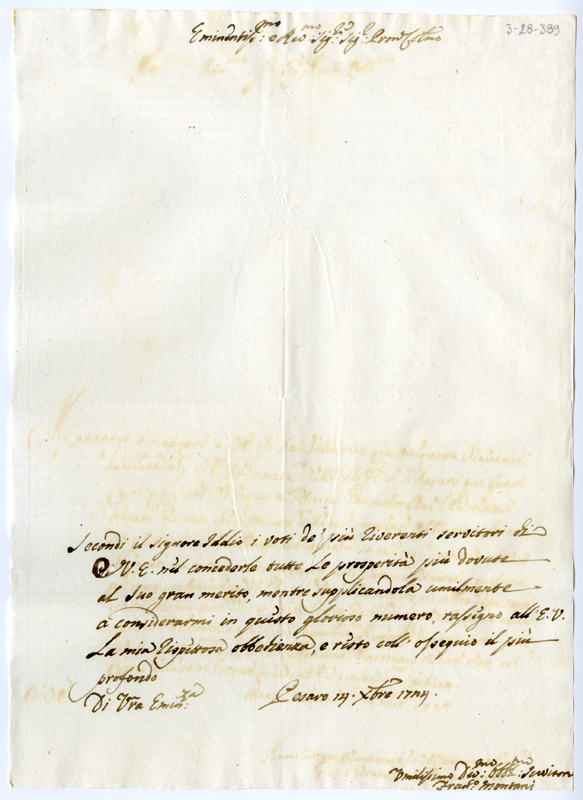 3-28-889
Eminentis:mo e Rev:mo Sig:r Sig:r Pron Colmo
Secondi il Signore Iddio i voti de' più riverenti servitori di
V. E. nel concederle tutte le prosperità più dovute
al suo gran merito, mentre supplicandola umilmente
a considerarmi in questo glorioso numero, rassegno all' E. V.
la mia rispettosa obbedienza, e resto coll' ossequio il più
profondo
Di Vra Emin:za Pesaro 14 Xbre 1744
Umilissimo Div:mo Obb:mo Servitore
Fran:co Montani